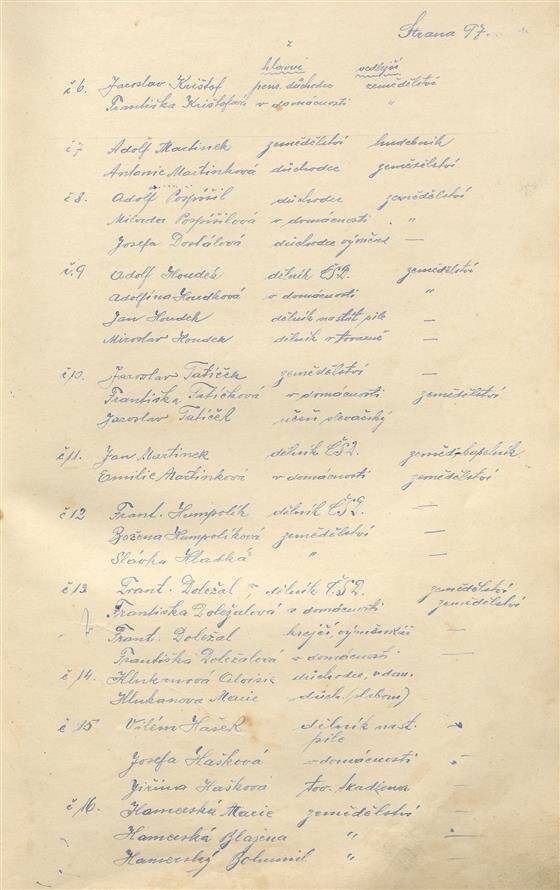 Strana 97.
hlavní vedlejší
č 6. Jaroslav Krištof pens. důchodce zemědělství
Františka Krištofová v domácnosti "
č 7 Adolf Martinek zemědělství hudebník
Antonie Martinková důchodce zemědělství
č 8. Adolf Pospíšil důchodce zemědělství
Milada Pospíšilová v domácnosti "
Josefa Dostálová důchodce výměnk. —
č. 9 Adolf Houdek dělník ČSD. zemědělství
Adolfina Houdková v domácnosti "
Jan Houdek dělník na stát pile —
Miroslav Houdek dělník v továrně —
č 10. Jaroslav Tatíček zemědělství —
Františka Tatíčková v domácnosti zemědělství
Jaroslav Tatíček učeň slevačský
č 11. Jan Martinek dělník ČSD. zeměd. kapelník
Emilie Martinková v domácnosti zemědělství
č 12 Frant. Humpolík dělník ČSD. —
Božena Humpolíková zemědělství —
Slávka Hladká " —
č 13 Frant. Doležal - dělník ČSD. zemědělství
Františka Doležalová v domácnosti zemědělství
Frant. Doležal krejčí, výměnkář —
Františka Doležalová v domácnosti —
č 14. Klukanová Aloisie důchodce, v dom.
Klukanova Marie důch.
č 15 Vilém Hašek dělník na st. "
pile
Josefa Hašková v domácnosti "
Jiřina Hašková tov. —
č 16. Hamerská Marie zemědělství —
Hamerská Blažena " "
Hamerský Bohumil " —